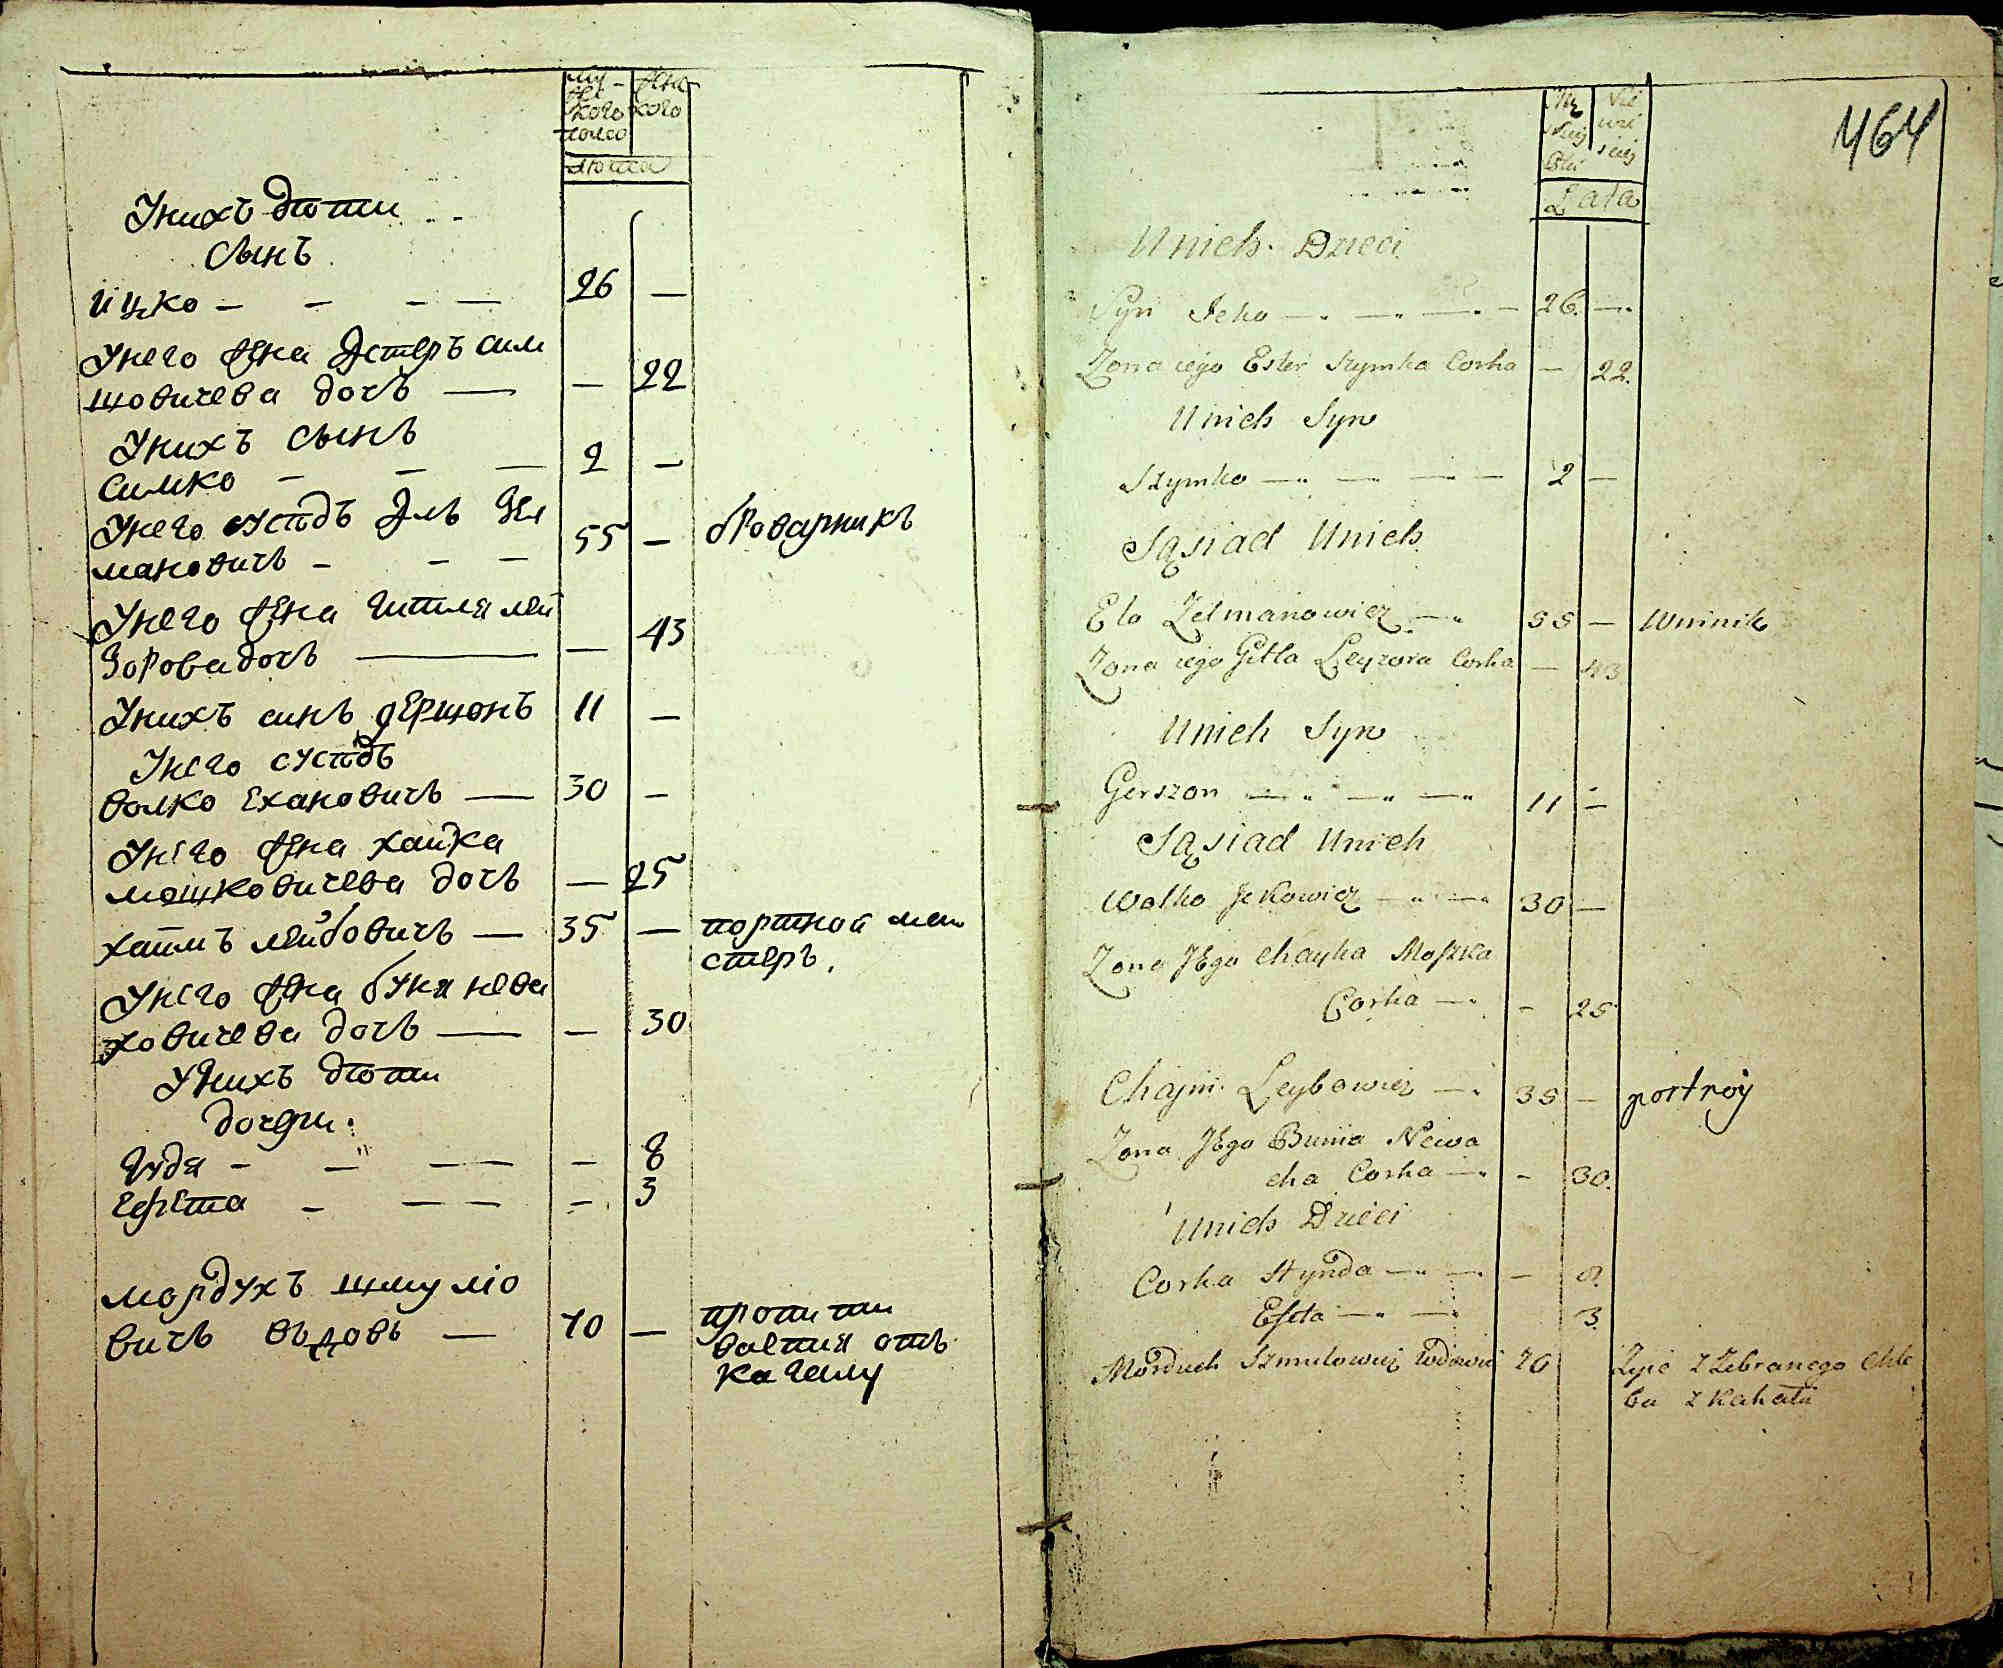 му- жен
же
кого кого
полсо
лета
Унихъ дѣти
сынъ
ицко — — — — 26 —
Унего жена Эстеръ сим
шовичева дочь — — 22
Унихъ сынъ
симко — — — 2 —
Унего сусѣдъ Эль Зел
мановичь — — — 55 — броварникъ
Унего жена гитля лей
зорова дочь — — 43
Унихъ синъ гершонъ 11 —
Унего сусѣдъ
волко ехановичь — 30 —
Унего жена хайка
мошковичева дочь — 25
хаимъ лейбовичь — 35 — портной мей
стеръ.
Унего жена буня нева
ховичева дочь — — 30
Унихъ дѣти
дочери.
гнда — — — — 8
ефета — — — — 3
мордухъ шмулю
вичь вдовъ — 70 — пропита
ваетия отъ
кагалу
464
Lata
Unich Dzieci
Syn Icko — — — — 26. —
Zona iego Ester Szymka Corka — 22.
Unich Syn
Szymko — — — — 2 —
Sąsiad Unich
Elo Zelmanowicz — 55 — Winnik
Zona iego Gitla Leyzora Corka — 43
Unich Syn
Gerszon — — — 11 —
Sąsiad Unich
Wolko Jckowicz — — 30 —
Zona JEgo Chayka Moszka
Corka — — 25
Chajm Leybowicz — 35 — portnoy
Zona JEgo Bunia Newa
cha Corka — — 30.
Unich Dzieci
Corka Hynda — — — 8.
Efeta — — 3
Morduch Szmulowicz Wdowiec 70 Zyie z Zebranego Chle
ba z Kahału